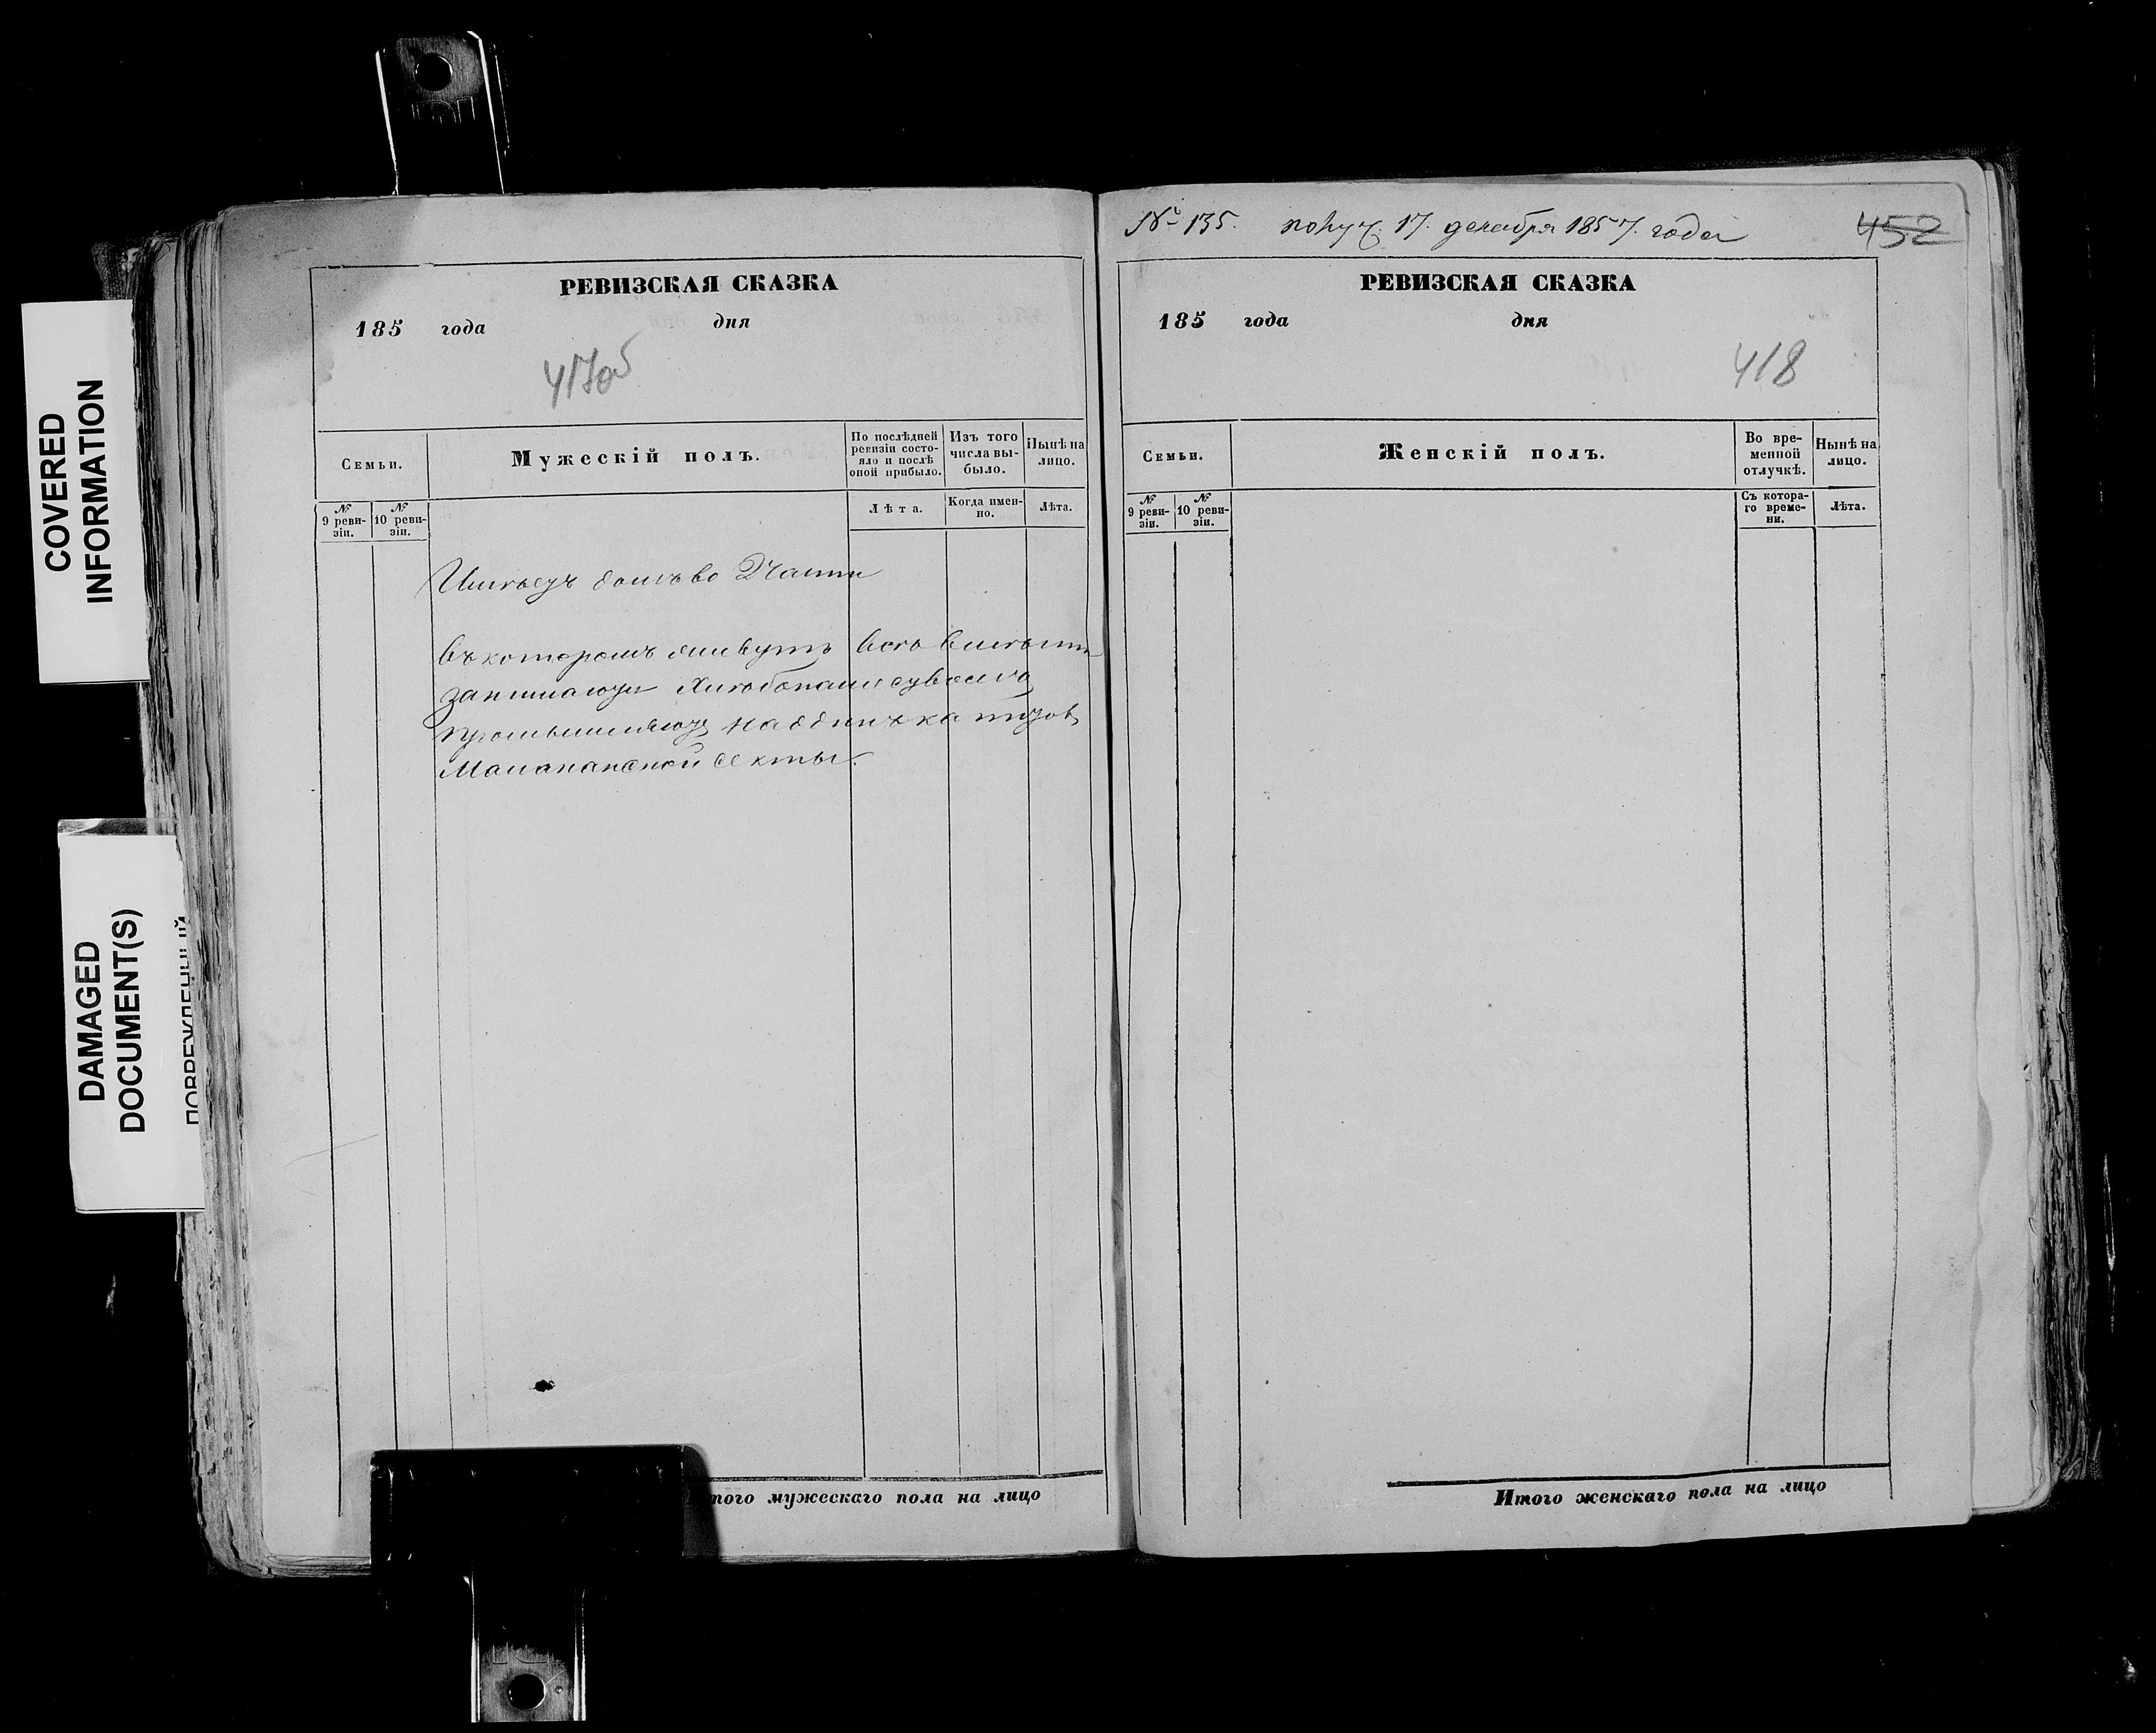 COVERED
INFORMATION
DAMAGED
DOCUMENT(S)
ПОВРЕЖДЕННЫЙ
РЕВИЗСКАЯ СКАЗКА
185 года дня
417об
Семьи.
Мужескій полъ.
По послѣдней ревизіи состояло и послѣ оной прибыло.
Изъ того числа выбыло.
Нынѣ на лицо.
№ 9 ревизіи.
№ 10 ревизіи.
Лѣта.
Когда именно.
Лѣта.
Имѣетъ домъ во 2 Части
въ которомъ живутъ всѣ вмѣстѣ
занимаются Хлѣбопашествомъ
Секты.
того мужескаго пола на лицо
№ 135. получ. 17. декабря 1857. года
452
РЕВИЗСКАЯ СКАЗКА
185 года дня
418
Семьи.
Женскій полъ.
Во временной отлучкѣ.
Нынѣ на лицо.
№ 9 ревизіи.
№ 10 ревизіи.
Съ котораго времени.
Лѣта.
Итого женскаго пола на лицо